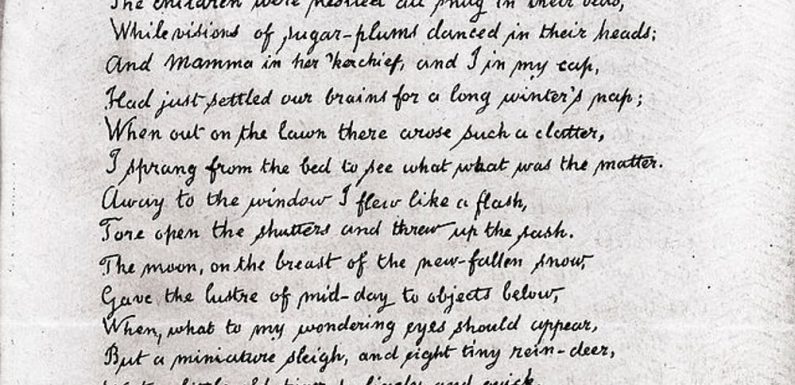 The children were nestled all snug in their beds,
While visions of sugar-plums danced in their heads;
And Mamma in her 'kerchief, and I in my cap,
Had just settled our brains for a long winter's nap;
When out on the lawn there arose such a clatter,
I sprang from the bed to see what what was the matter.
Away to the window I flew like a flash,
Tore open the shutters and threw up the sash.
The moon, on the breast of the new-fallen snow,
Gave the lustre of mid-day to objects below,
When, what to my wondering eyes should appear,
But a miniature sleigh, and eight tiny rein-deer,